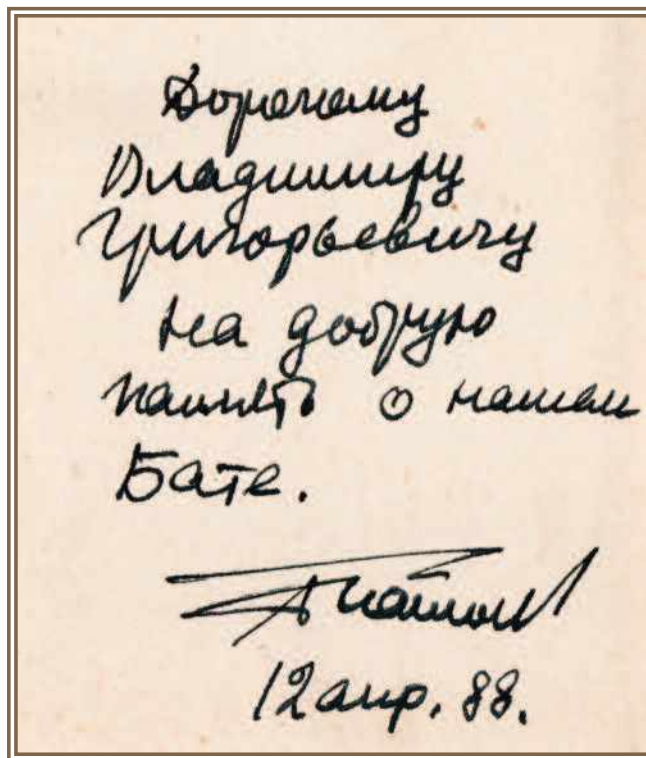 Дорогому
Владимиру
Григорьевичу
на добрую
память о нашем
Бате.
12 апр. 88.